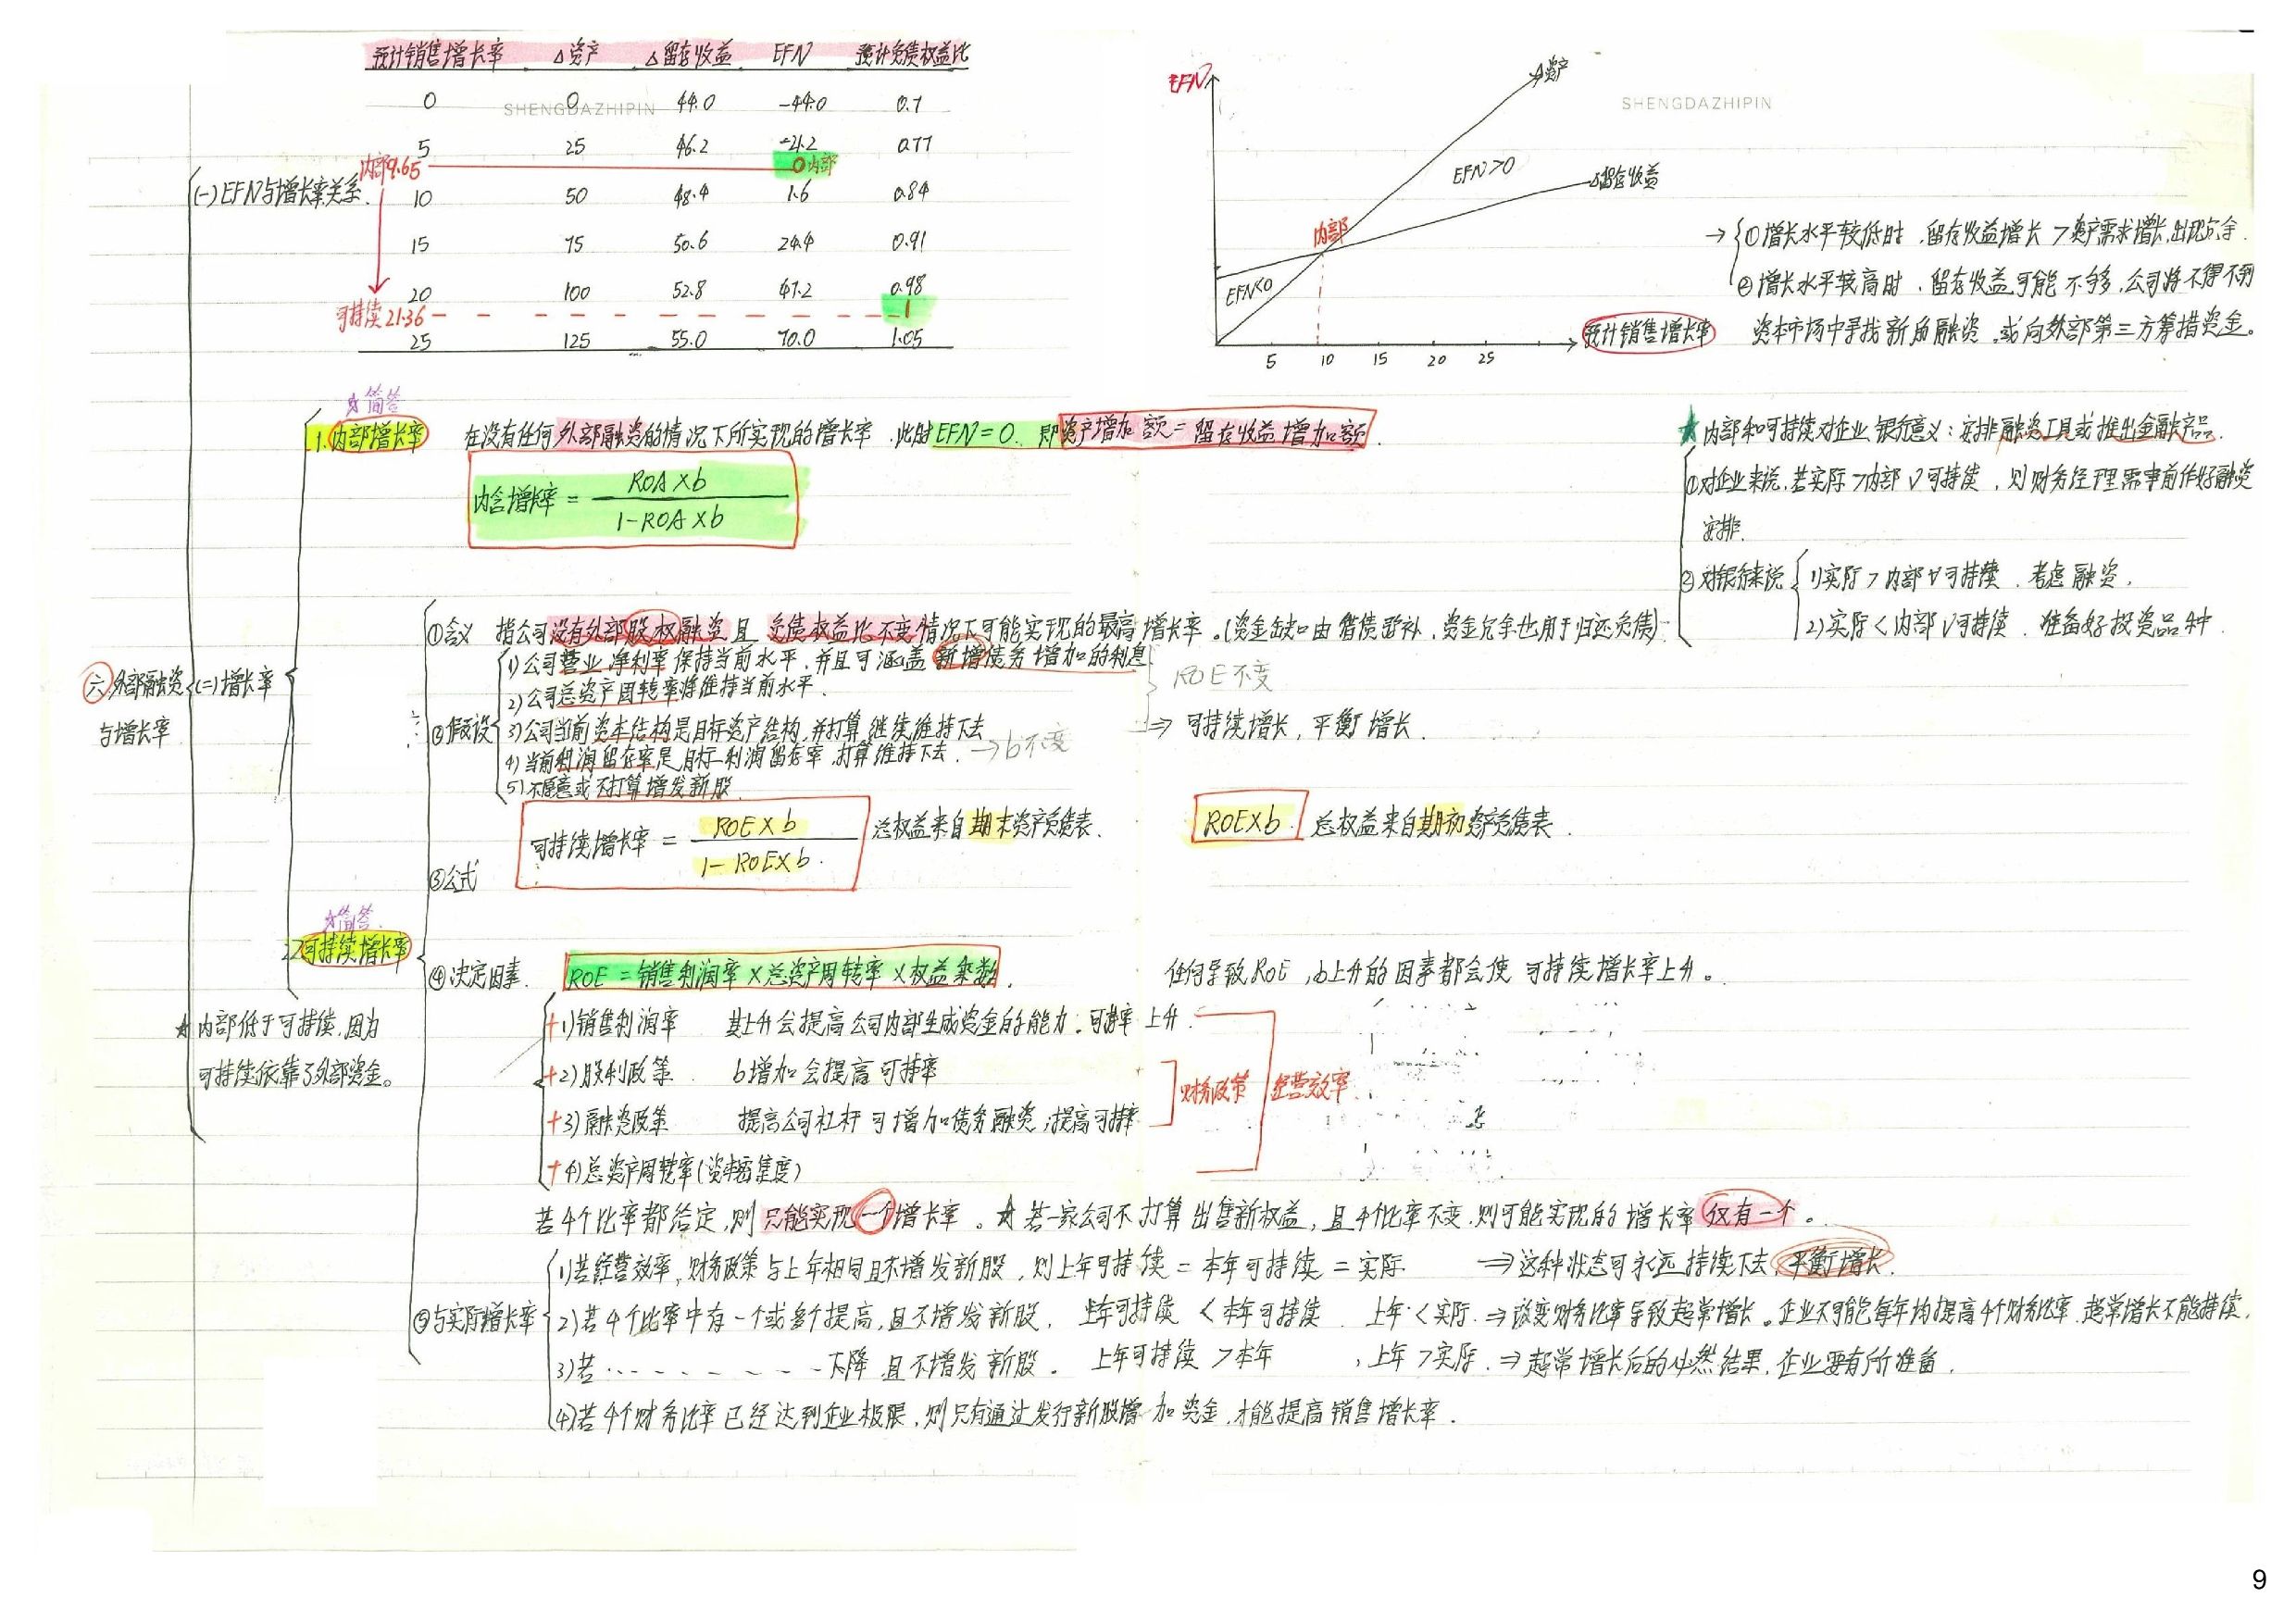 预计销售增长率 △资产 △留存收益 EFN 预计负债权益比
SHENGDAZHIPIN
0 0 44.0 -44.0 0.7
5 25 46.2 -21.2 0.77
内部9.65 0内部
10 50 48.4 1.6 0.84
15 75 50.6 24.4 0.91
20 100 52.8 47.2 0.98
可持续21.36 1
25 125 55.0 70.0 1.05
(一)EFN与增长率关系.
EFN
△资产
SHENGDAZHIPIN
EFN>0
△留存收益
内部
EFN<0
5 10 15 20 25
预计销售增长率
→ ①增长水平较低时,留存收益增长>资产需求增长,出现冗余.
②增长水平较高时,留存收益可能不够,公司将不得不到
资本市场中寻找新的融资,或向外部第三方筹措资金。
☆简答
1.内部增长率 在没有任何外部融资的情况下所实现的增长率.此时EFN=0. 即资产增加额=留存收益增加额.
内含增长率 = ROA×b / 1-ROA×b
★内部和可持续对企业银行意义:安排融资工具或推出金融产品.
①对企业来说,若实际>内部∨可持续,则财务经理需事前作好融资
安排.
②对银行来说 1)实际>内部∨可持续.考虑融资.
2)实际<内部∨可持续.准备好投资品种.
六 外部融资
与增长率
(二)增长率
①含义 指公司没有外部股权融资且负债权益比不变情况下可能实现的最高增长率.(资金缺口由借债弥补,资金冗余也用于归还负债)
②假设
1)公司营业净利率保持当前水平,并且可涵盖新增债务增加的利息
2)公司总资产周转率将维持当前水平.
3)公司当前资本结构是目标资产结构,并打算继续维持下去
4)当前利润留存率是目标利润留存率,打算维持下去. →b不变
5)不愿意或不打算增发新股.
ROE不变
⇒ 可持续增长,平衡增长.
③公式
可持续增长率 = ROE×b / 1-ROE×b. 总权益来自期末资产负债表.
ROE×b 总权益来自期初资产负债表.
☆简答.
2.可持续增长率
④决定因素. ROE=销售利润率×总资产周转率×权益乘数. 任何导致ROE,b上升的因素都会使可持续增长率上升。
★内部低于可持续,因为
可持续依靠了外部资金。
+1)销售利润率 其上升会提高公司内部生成资金的能力.可持率上升.
+2)股利政策. b增加会提高可持率
+3)融资政策 提高公司杠杆可增加债务融资,提高可持率
+4)总资产周转率(资本密集度)
财务政策
经营效率.
若4个比率都给定,则只能实现一个增长率。★若一家公司不打算出售新权益,且4个比率不变.则可能实现的增长率仅有一个。
⑤与实际增长率
1)若经营效率,财务政策与上年相同且不增发新股,则上年可持续=本年可持续=实际 ⇒这种状态可永远持续下去,平衡增长.
2)若4个比率中有一个或多个提高,且不增发新股, 上年可持续<本年可持续. 上年<实际. ⇒改变财务比率导致超常增长。企业不可能每年均提高4个财务比率.超常增长不能持续.
3)若…------下降,且不增发新股。 上年可持续>本年 ,上年>实际.⇒超常增长后的必然结果,企业要有所准备.
4)若4个财务比率已经达到企业极限,则只有通过发行新股增加资金,才能提高销售增长率.
9